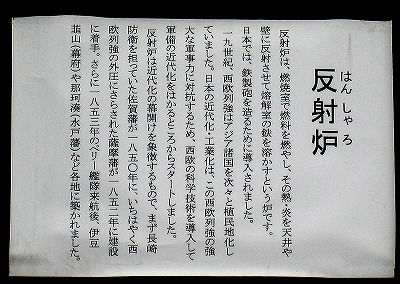 はんしゃろ
反射炉
反射炉は、燃焼室で燃料を燃やし、その熱・炎を天井や
壁に反射させて溶解室の鉄を溶かすという炉です。
日本では、鉄製砲を造るために導入されました。
一九世紀、西欧列強はアジア諸国を次々と植民地化し
ていました。日本の近代化・工業化は、この西欧列強の強
大な軍事力に対抗するため、西欧の科学技術を導入して
軍備の近代化をはかるところからスタートしました。
反射炉は近代化の幕開けを象徴するもので、まず長崎
防衛を担っていた佐賀藩が一八五〇年に、いちはやく西
欧列強の外圧にさらされた薩摩藩が一八五二年に建設
に着手。さらに一八五三年のペリー艦隊来航後、伊豆
韮山（幕府）や那珂湊（水戸藩）など各地に築かれました。